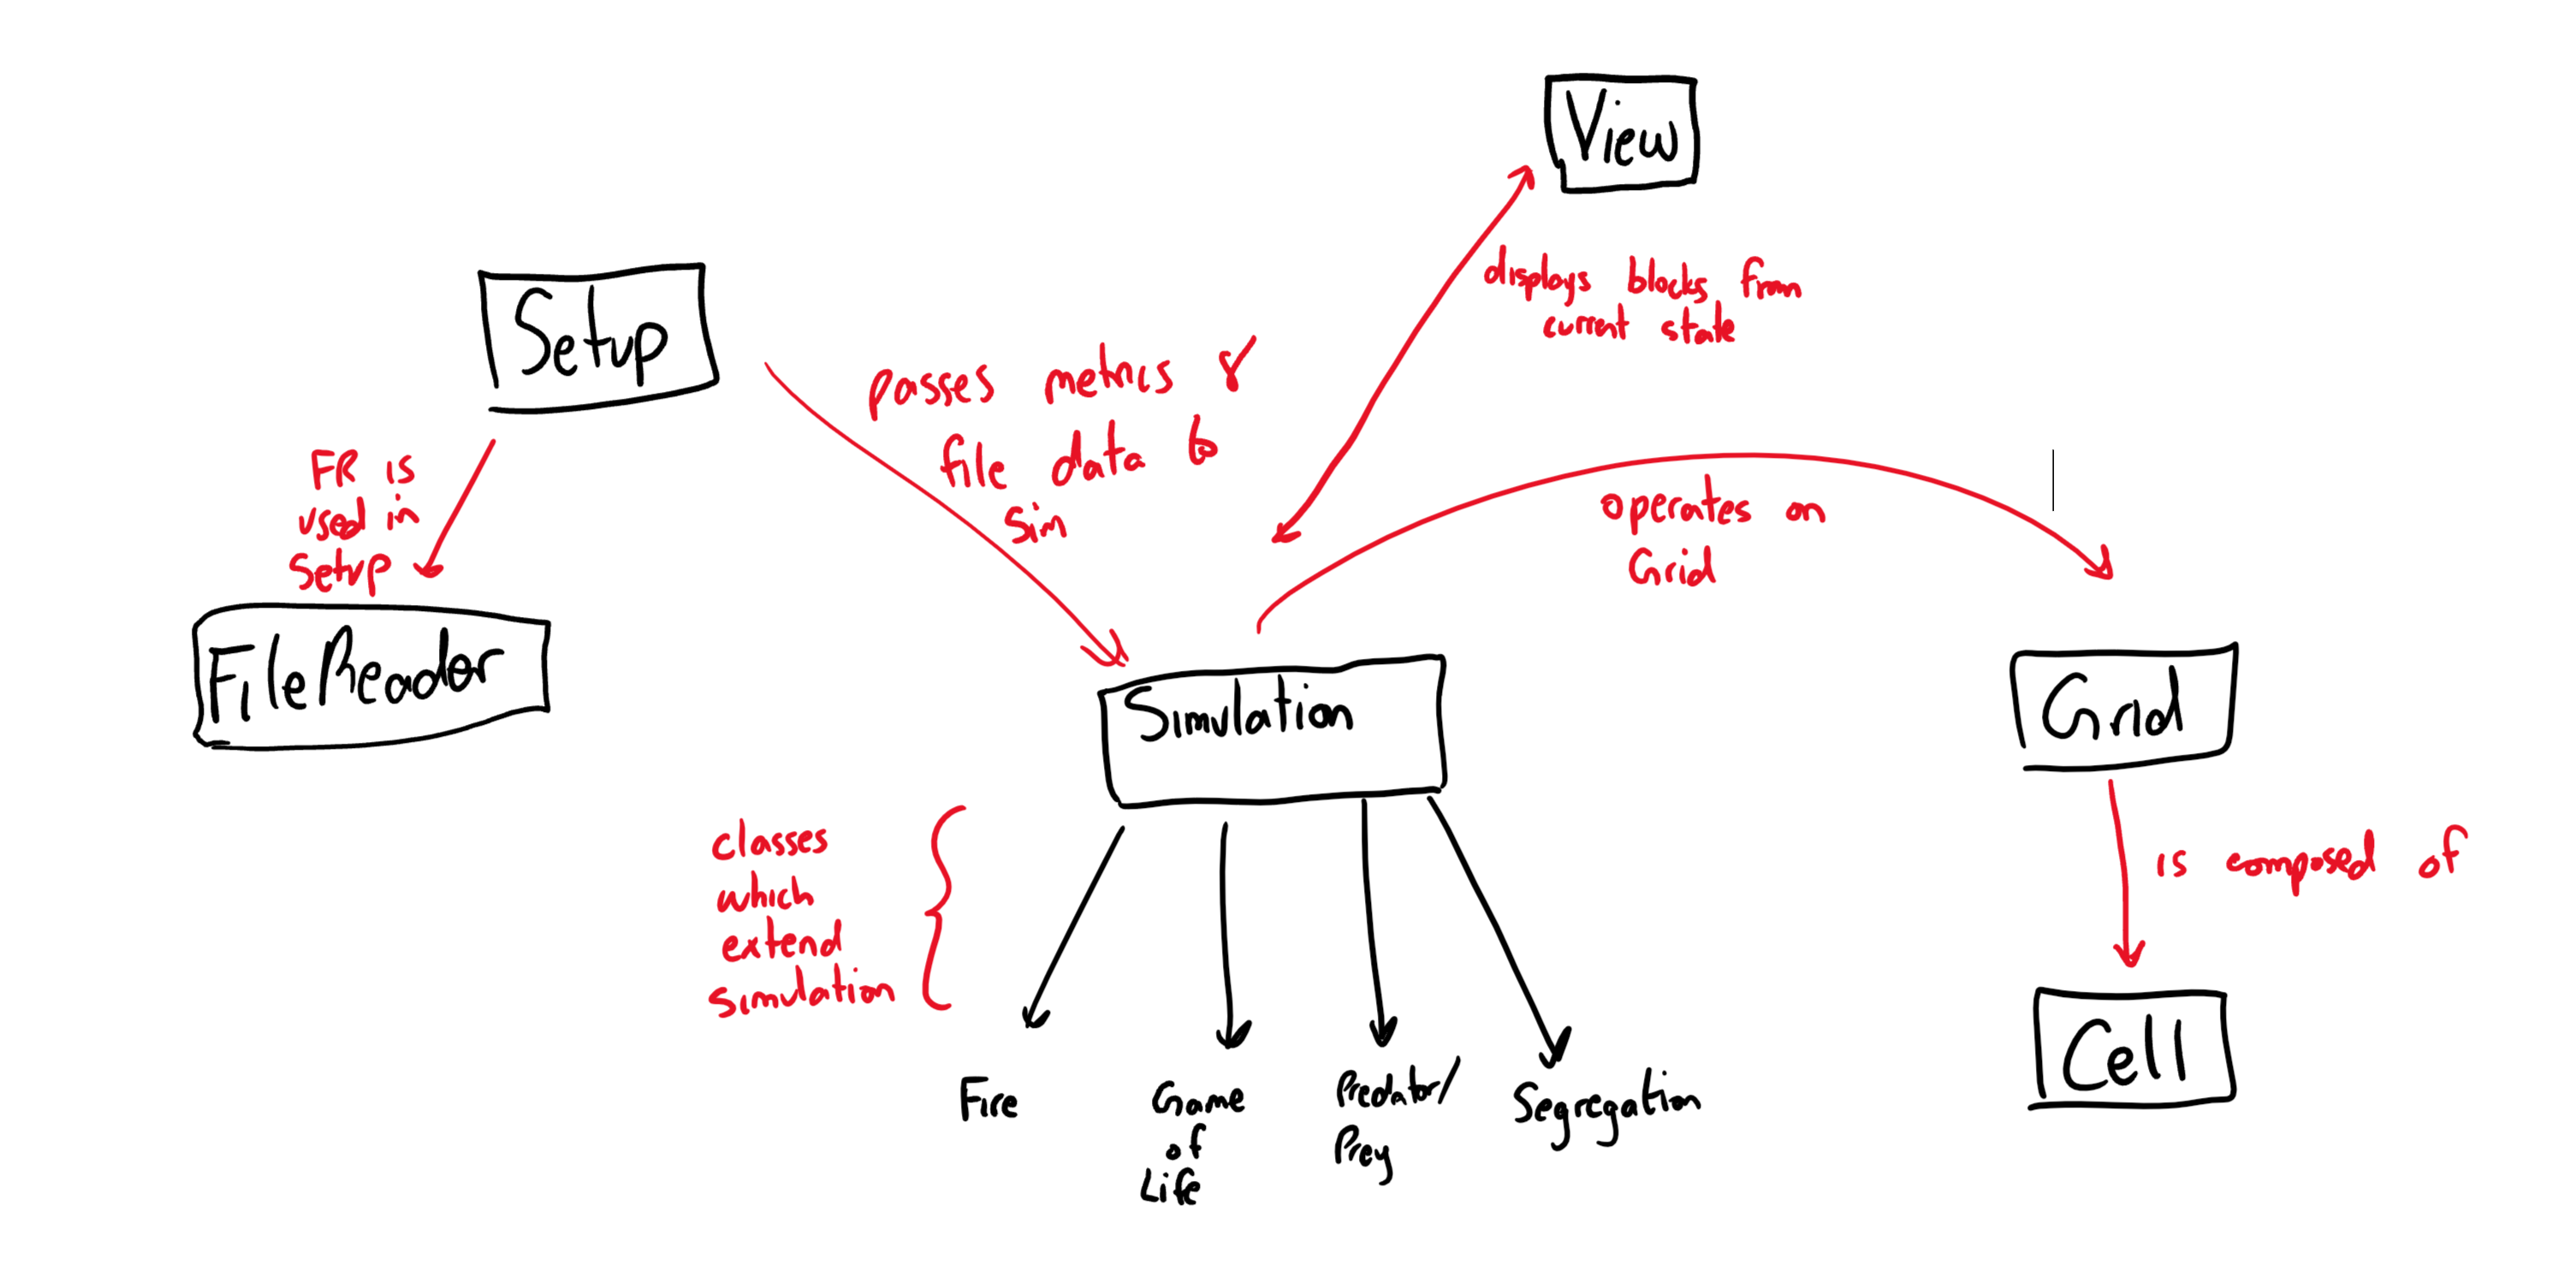 View
displays blocks from
current state
Setup
passes metrics &
file data to
sim
FR is
used in
setup
operates on
Grid
FileReader
Simulation
Grid
classes
which
extend
simulation
is composed of
Fire
Game
of
Life
Predator/
Prey
Segregation
Cell